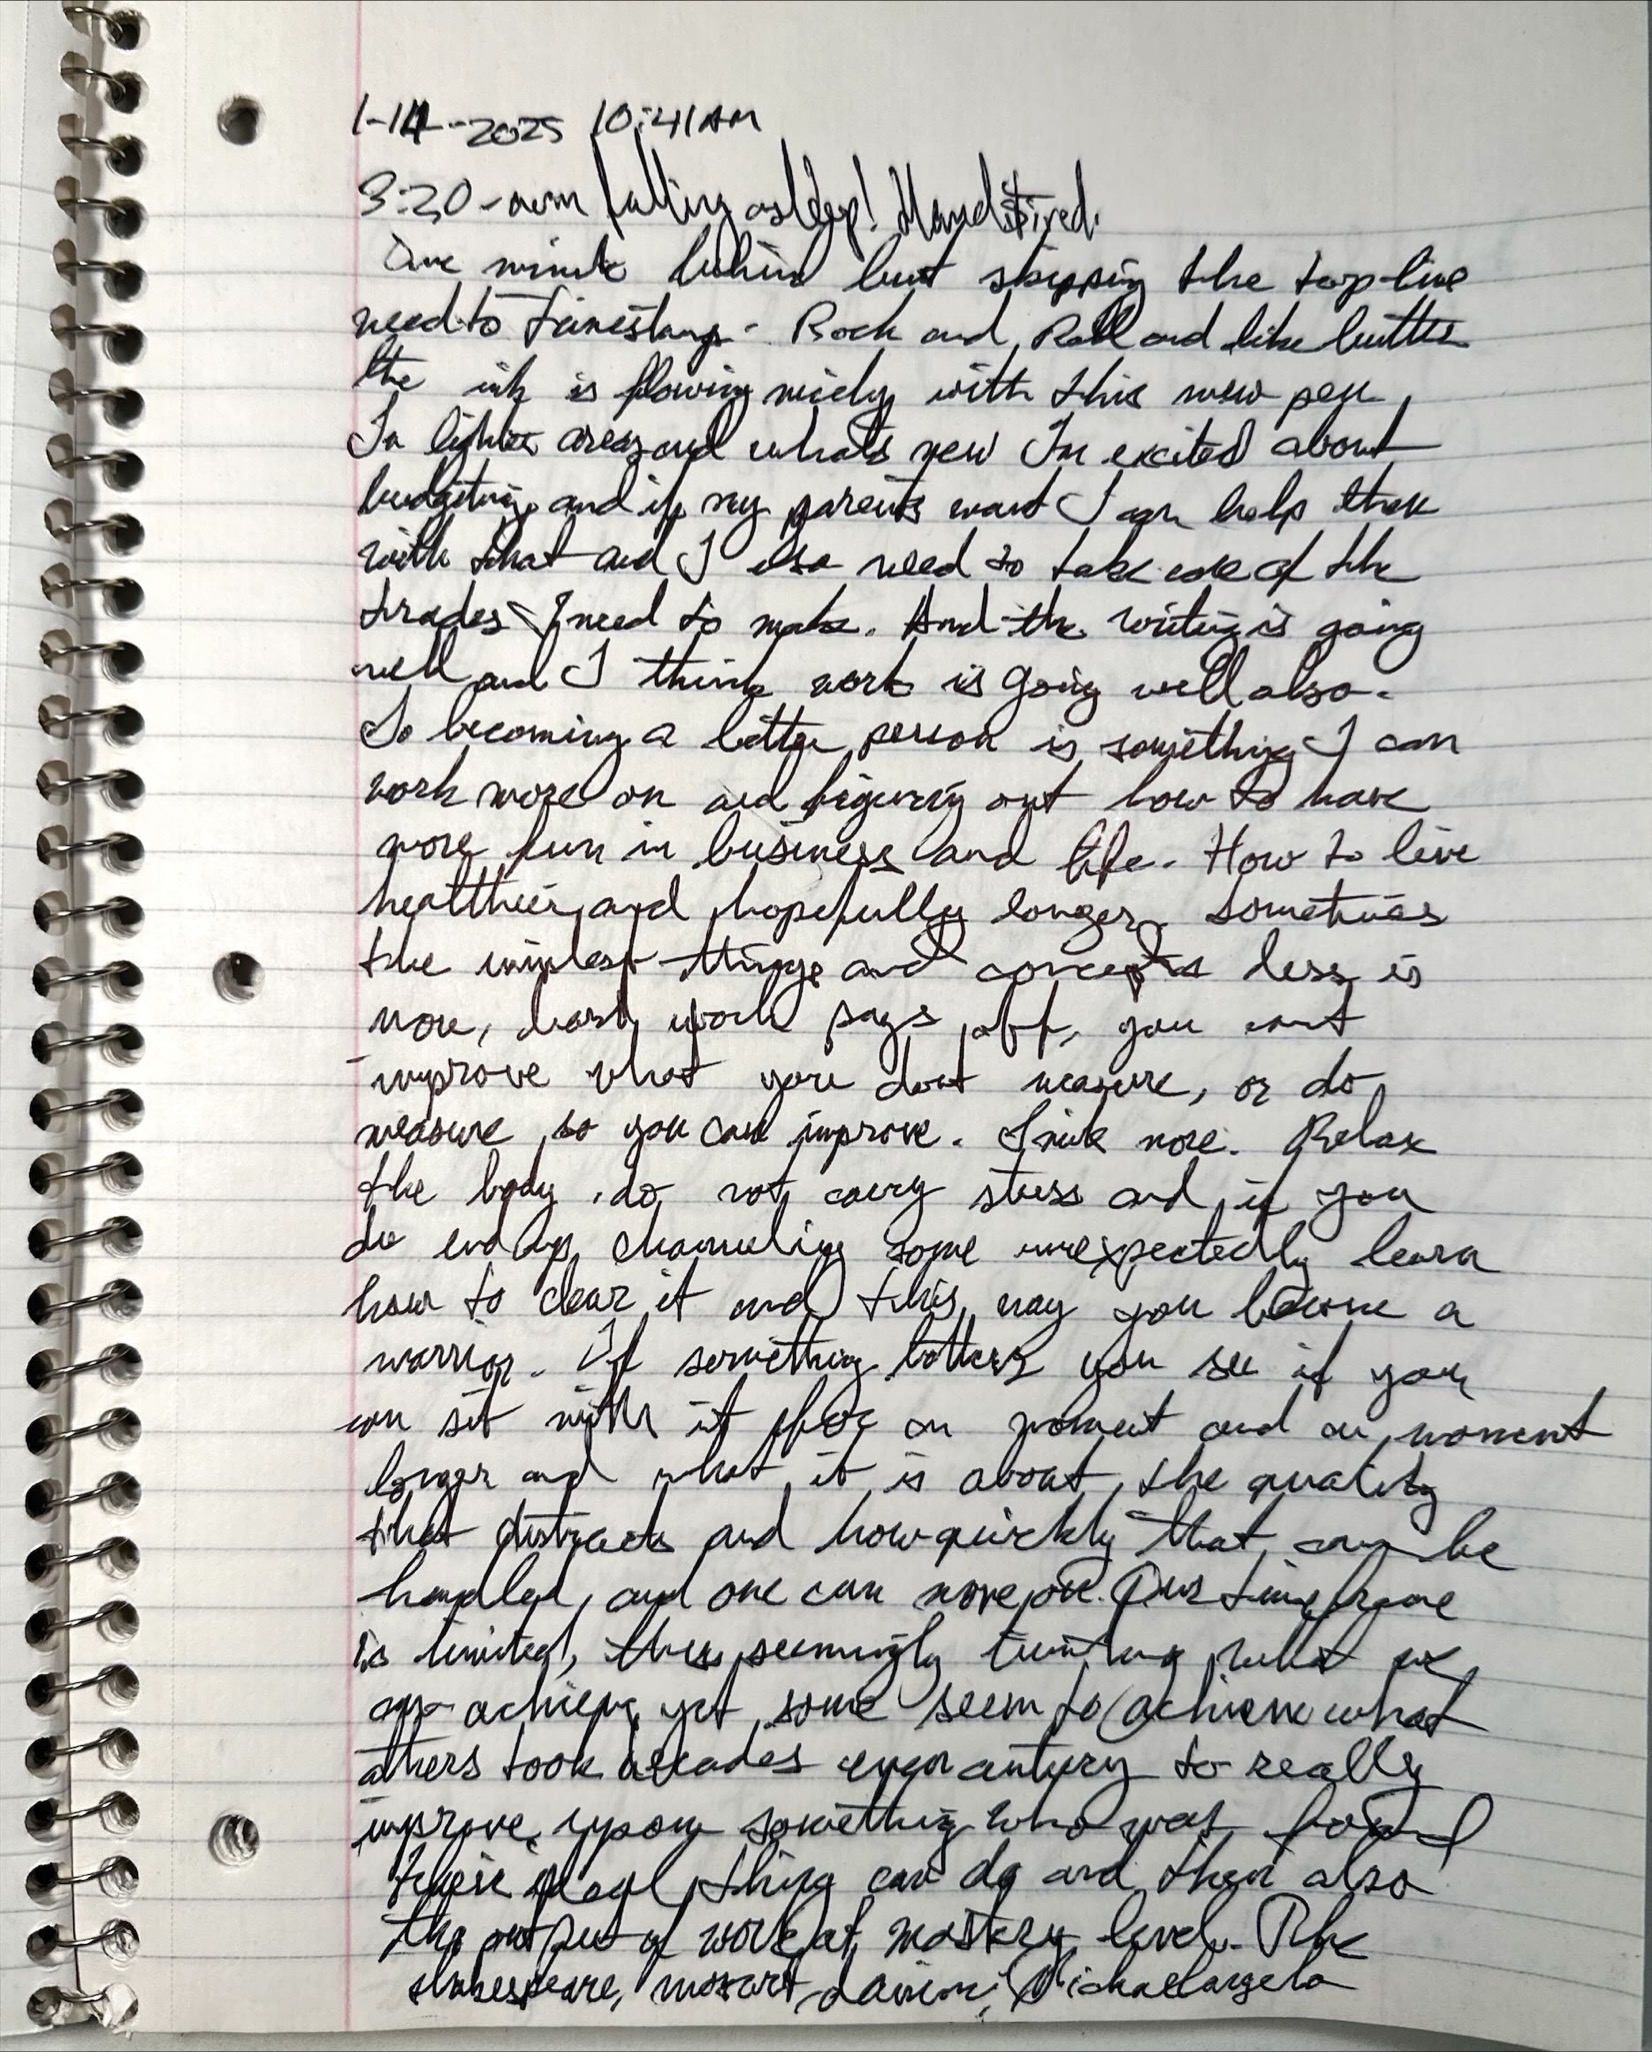 1-14-2025 10:41AM
3:20-am falling asleep! Hand tired.
One minute behind but skipping the top-line
need to timestamp. Rock and Roll and like butter
the ink is flowing nicely with this new pen
In lighter areas and whats new Im excited about
budgeting and if my parents want I can help them
with that and I also need to take care of the
trades I need to make. And the writing is going
well and I think work is going well also.
So becoming a better person is something I can
work more on and figuring out how to have
more fun in business and life. How to live
healthier and hopefully longer. Sometimes
the simplest things and concepts less is
more, hard work pays off, you cant
improve what you dont measure, or do
measure so you can improve. more. Relax
the body, do not carry stress and if you
do end up channeling some unexpectedly learn
how to clear it and this way you become a
warrior. If something bothers you see if you
can sit with it for a moment and a moment
longer and what it is about the quality
that distracts and how quickly that can be
handled and one can move on. Our timeframe
is limited, thus seemingly limiting what we
can achieve yet some seem to achieve what
others took decades even century to really
improve upon something who was found
their ideal thing can do and then also
the output of work at mastery level. The
shakespeare, mozart, davinci, Michaelangelo